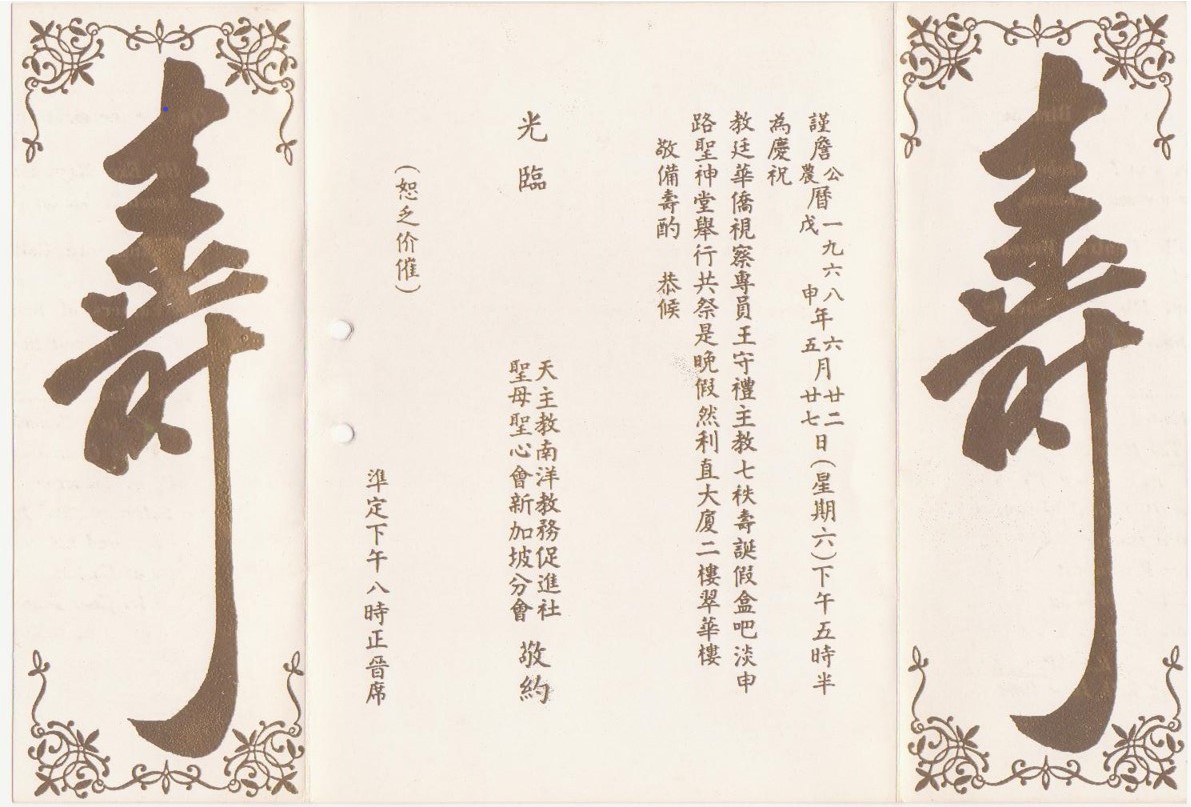 壽
謹詹公曆一九六八年六月廿二日(星期六)下午五時半
農曆戊申年五月廿七日
為慶祝
教廷華僑視察專員王守禮主教七秩壽誕假盒吧淡申
路聖神堂舉行共祭是晚假然利直大廈二樓翠華樓
敬備壽酌 恭候
光臨
天主教南洋教務促進社
聖母聖心會新加坡分會
敬約
(恕乏价催)
準定下午八時正晉席
壽